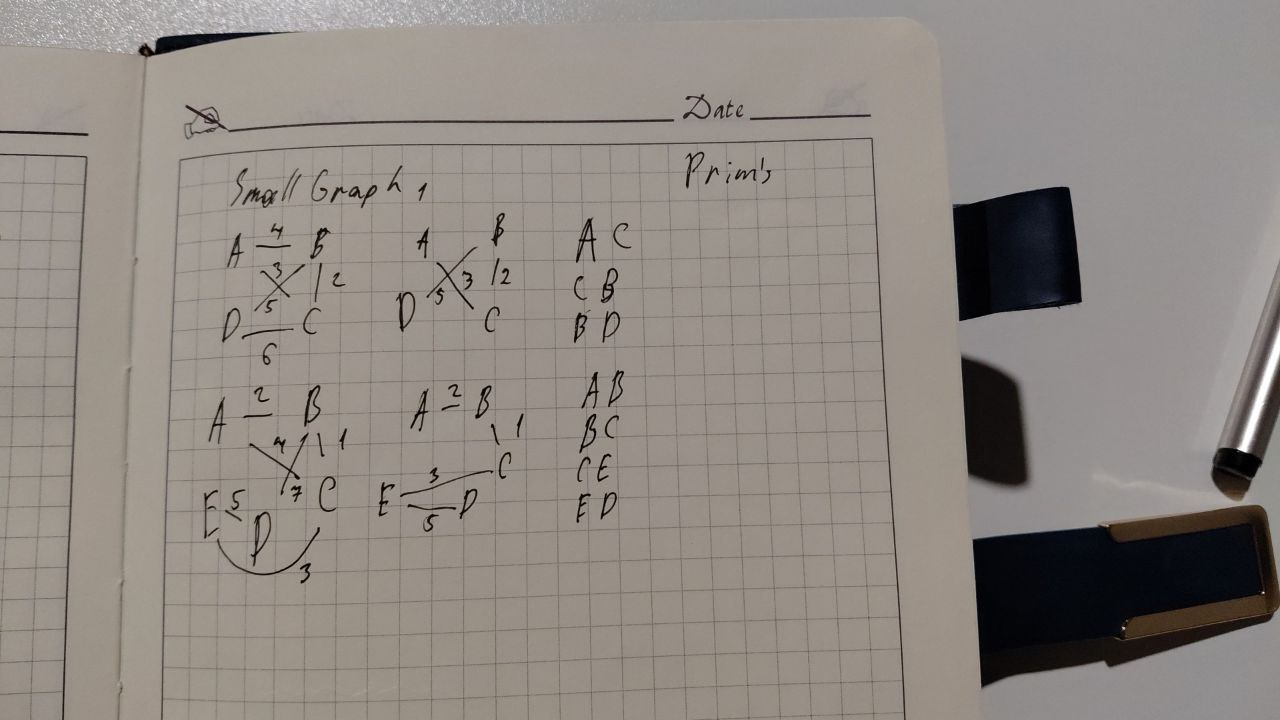 Date
Small Graph 1
Prim's
A 4 B
3 2
5
D C
6
A B
3 2
5
D C
A C
C B
B D
A 2 B
4 1
7
E 5 D C
3
A 2 B
1
3 C
E D
5
A B
B C
C E
E D